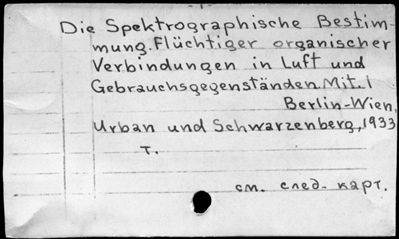 Die Spektrographische Bestim-
mung. Flüchtiger organischer
Verbindungen in Luft und
Gebrauchsgegenständen. Mit. 1
Berlin-Wien,
Urban und Schwarzenberg, 1933
т.
см. след. карт.